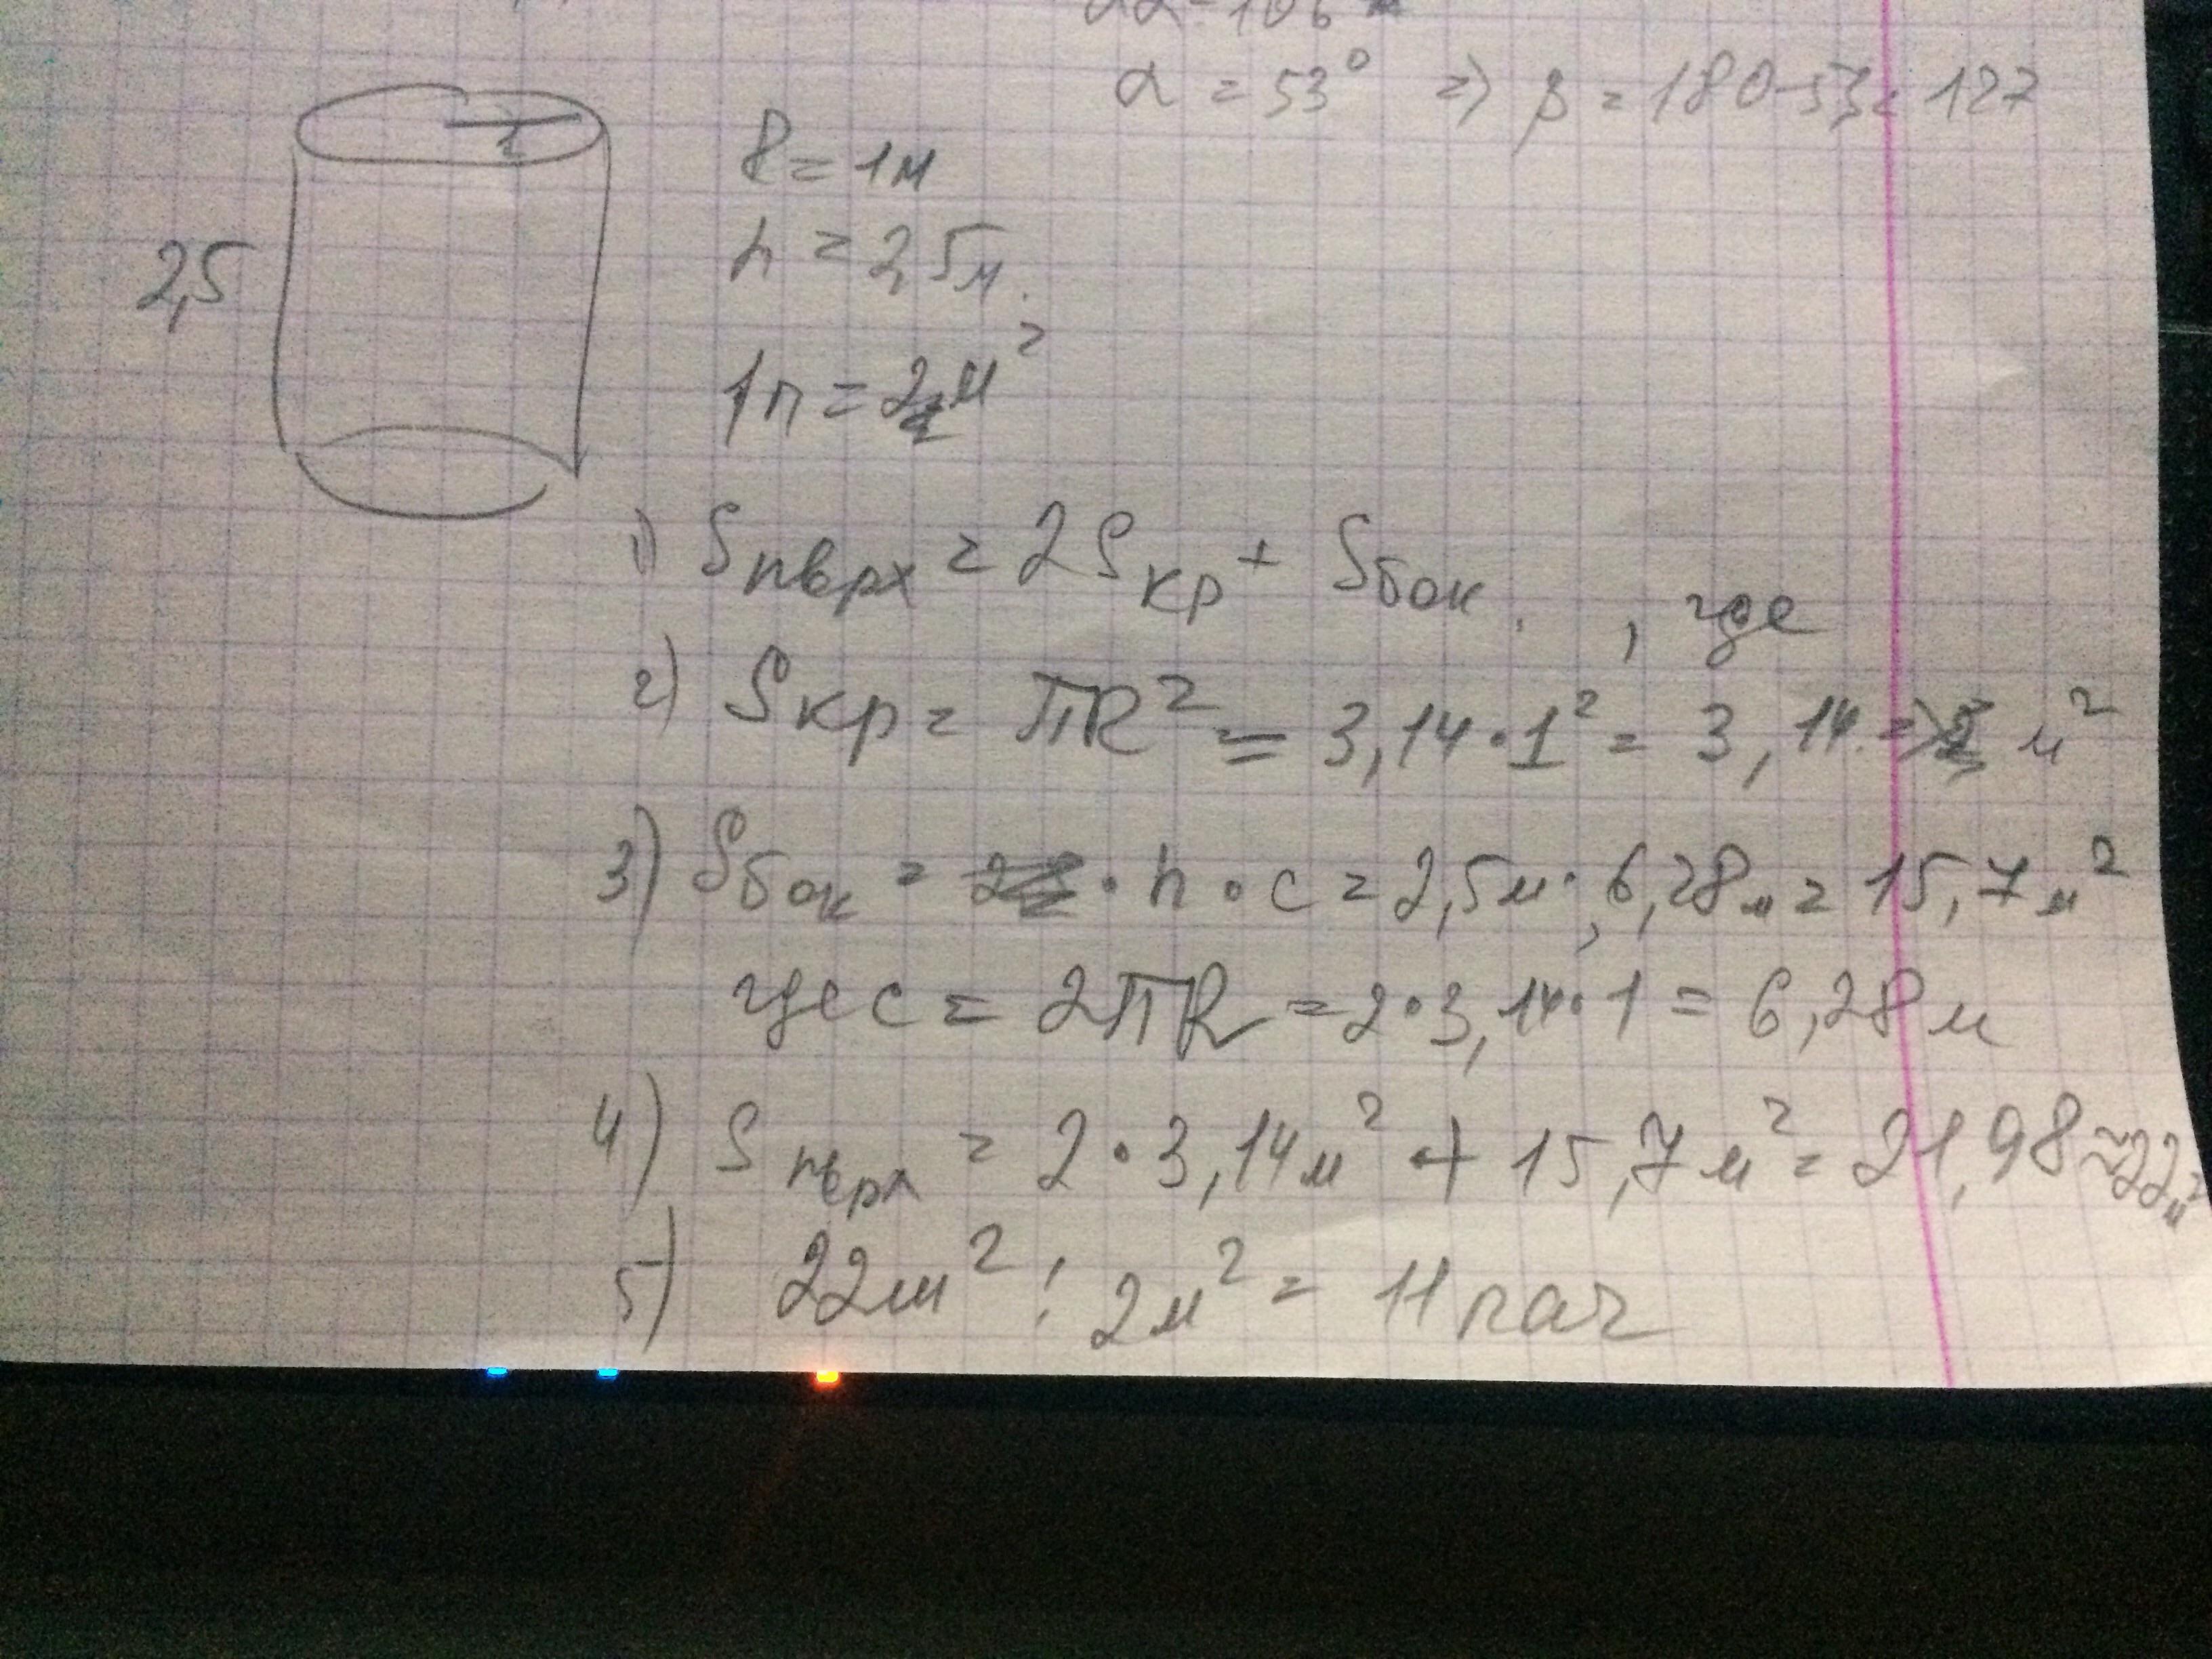 2α = 106
α = 53° => β = 180-53= 127
R = 1м
2,5
h = 2,5м.
1п = 2м²
1) Sпврх = 2Sкр + Sбок. , где
2) Sкр = πR² = 3,14·1² = 3,14 м²
3) Sбок = · h · c = 2,5м · 6,28м = 15,7м²
где c = 2πR = 2·3,14·1 = 6,28м
4) Sпврх = 2·3,14м² + 15,7м² = 21,98 ≈ 22м²
5) 22м² : 2м² = 11 пач